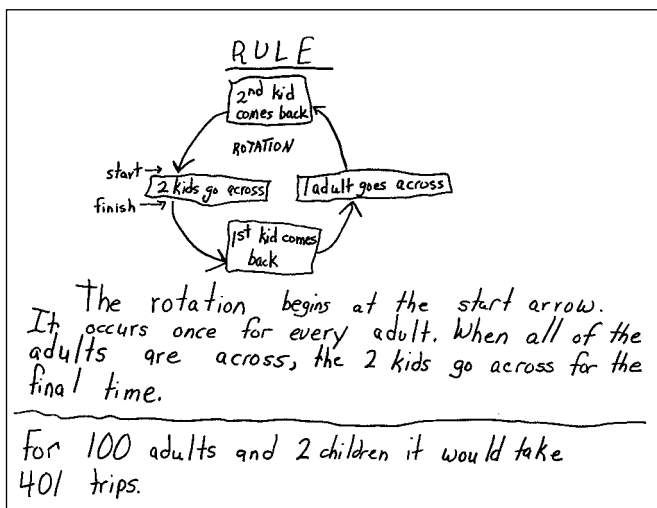 RULE
2nd kid
comes back
ROTATION
start→
2 kids go across
1 adult goes across
finish→
1st kid comes
back
The rotation begins at the start arrow.
It occurs once for every adult. When all of the
adults are across, the 2 kids go across for the
final time.
For 100 adults and 2 children it would take
401 trips.